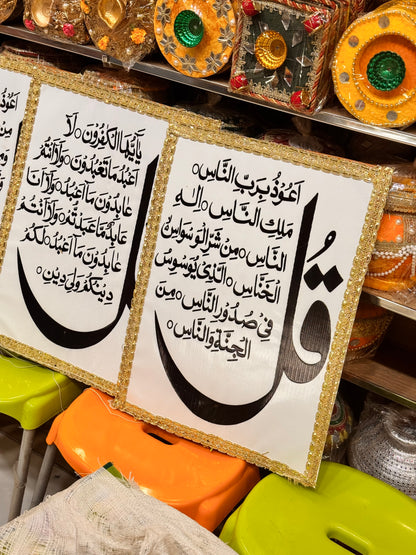 قُل
اَعُوْذُ بِرَبِّ النَّاسِ ○
مَلِكِ النَّاسِ ○ اِلٰهِ
النَّاسِ ○ مِنْ شَرِّ الْوَسْوَاسِ
الْخَنَّاسِ ○ الَّذِیْ يُوَسْوِسُ
فِیْ صُدُوْرِ النَّاسِ ○ مِنَ
الْجِنَّةِ وَالنَّاسِ ○
يٰۤاَيُّهَا الْكٰفِرُوْنَ ○ لَاۤ
اَعْبُدُ مَا تَعْبُدُوْنَ ○ وَلَاۤ اَنْتُمْ
عٰبِدُوْنَ مَاۤ اَعْبُدُ ○ وَلَاۤ اَنَا
عَابِدٌ مَّا عَبَدْتُّمْ ○ وَلَاۤ اَنْتُمْ
عٰبِدُوْنَ مَاۤ اَعْبُدُ ○ لَكُمْ
دِيْنُكُمْ وَلِیَ دِيْنِ ○
اَعُوْذُ
مِنْ